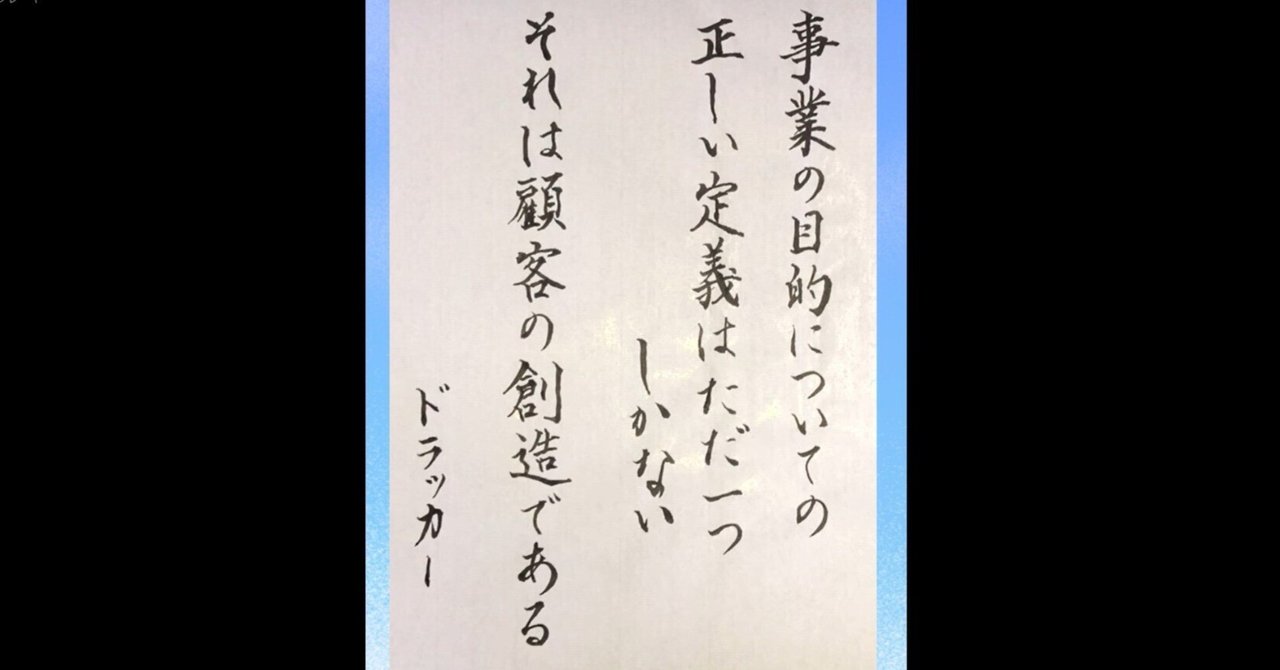 事業の目的についての
正しい定義はただ一つ
しかない
それは顧客の創造である
ドラッカー